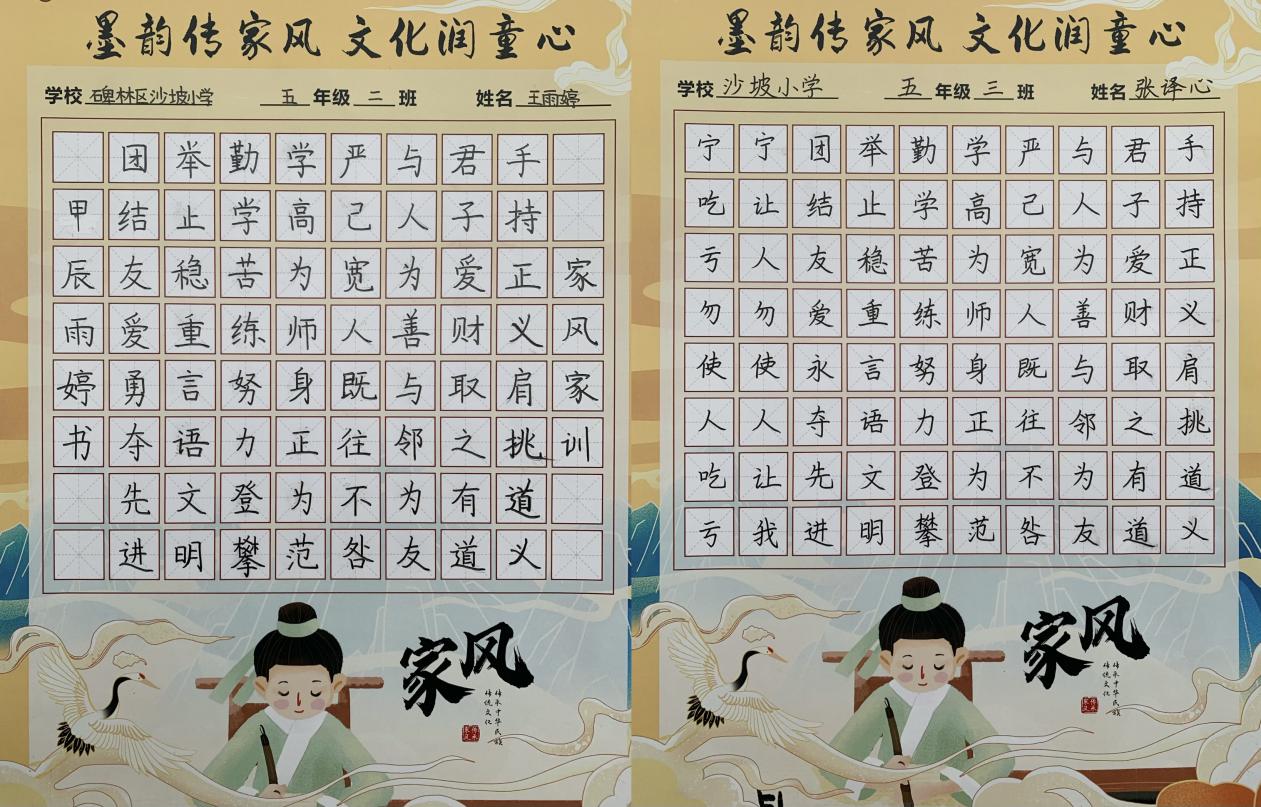 墨韵传家风 文化润童心
学校 碑林区沙坡小学 五 年级 二 班 姓名 王雨婷
家风家训
手持正义肩挑道义
君子爱财取之有道
与人为善与邻为友
严己宽人既往不咎
学高为师身正为范
勤学苦练努力登攀
举止稳重言语文明
团结友爱勇夺先进
甲辰雨婷书
家风
传承中华民族
传统文化
墨韵传家风 文化润童心
学校 沙坡小学 五 年级 三 班 姓名 张译心
手持正义肩挑道义
君子爱财取之有道
与人为善与邻为友
严己宽人既往不咎
学高为师身正为范
勤学苦练努力登攀
举止稳重言语文明
团结友爱永夺先进
宁让人勿使人让我
宁吃亏勿使人吃亏
家风
传承中华民族
传统文化